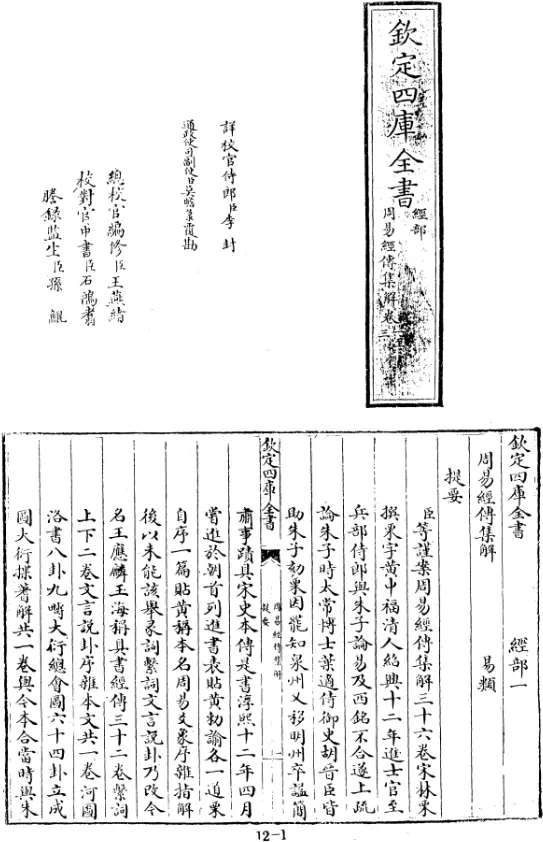 欽定四庫全書
經部
周易經傳集解卷三
詳校官侍郎臣李封
通政使司副使臣莫瞻菉覆勘
總校官編修臣王燕緒
校對官中書臣石鴻翥
謄錄監生臣孫鯤
欽定四庫全書 經部一
周易經傳集解 易類
提要
臣等謹案周易經傳集解三十六卷宋林栗
撰栗字黄中福清人紹興十二年進士官至
兵部侍郎與朱子論易及西銘不合遂上疏
論朱子時太常博士葉適侍御史胡晉臣皆
助朱子劾栗因罷知泉州又移明州卒諡簡
欽定四庫全書
周易經傳集解
提要
一
肅事蹟具宋史本傳是書淳熙十二年四月
嘗進於朝首列進書表貼黄勅諭各一道栗
自序一篇貼黄稱本名周易爻象序雜指解
後以未能該舉彖詞繫詞文言說卦乃改今
名王應麟玉海稱其書經傳三十二卷繫詞
上下二卷文言說卦序雜本文共一卷河圖
洛書八卦九疇大衍總會圖六十四卦立成
圖大衍揲蓍解共一卷與今本合當時與朱
12-1